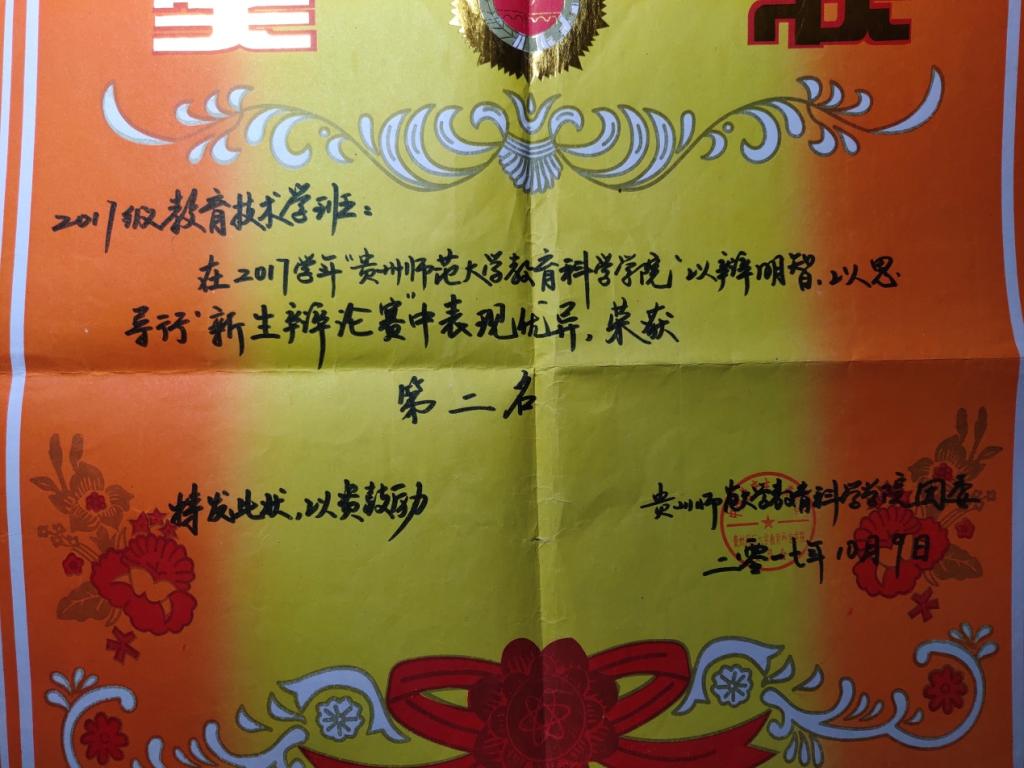 奖状
2017级教育技术学班：
在2017学年“贵州师范大学教育科学学院‘以辩明智，以思
导行’新生辩论赛”中表现优异，荣获
第二名
特发此状，以资鼓励
贵州师范大学教育科学学院团委
二零一七年10月9日